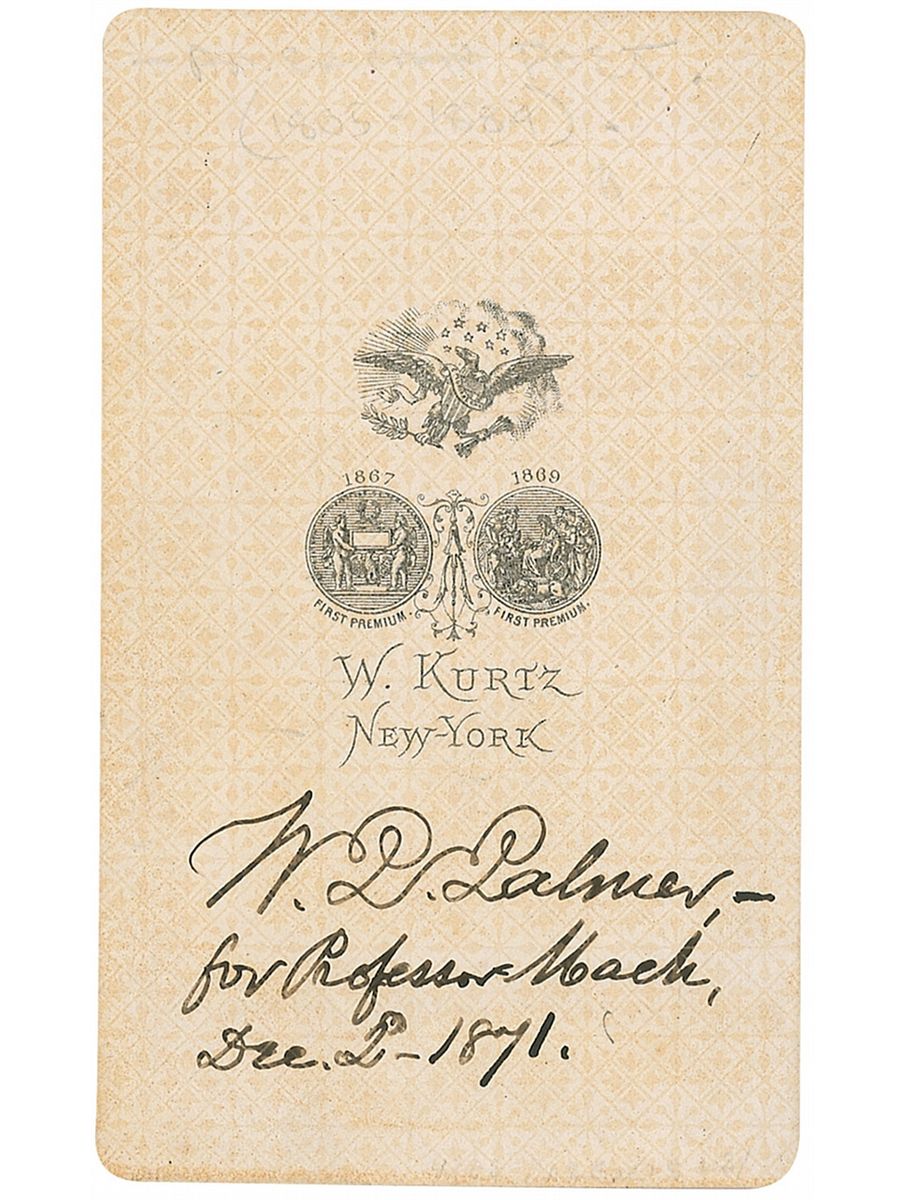 1867 1869
FIRST PREMIUM. FIRST PREMIUM.
W. KURTZ
NEW-YORK
W. D. Palmer,–
for Professor Mach,
Dec. 2– 1871.